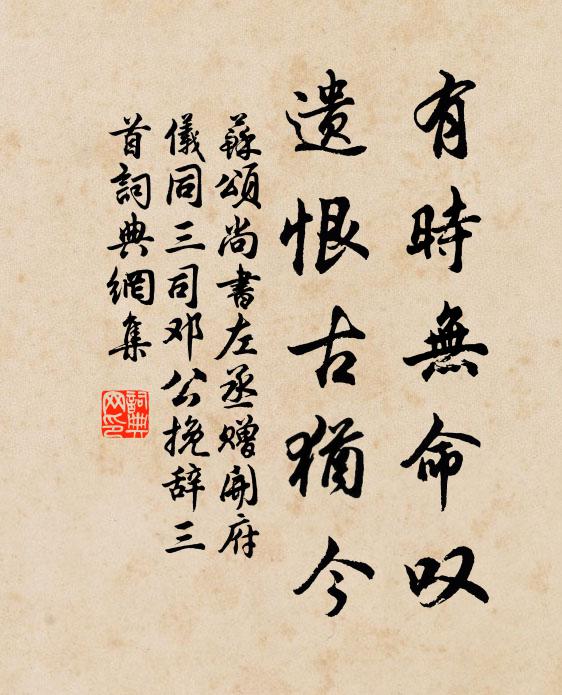 有時無命叹
遗恨古猶今
蘇頌尚書左丞赠開府
儀同三司邓公挽辞三
首詞典網集
詞典网印